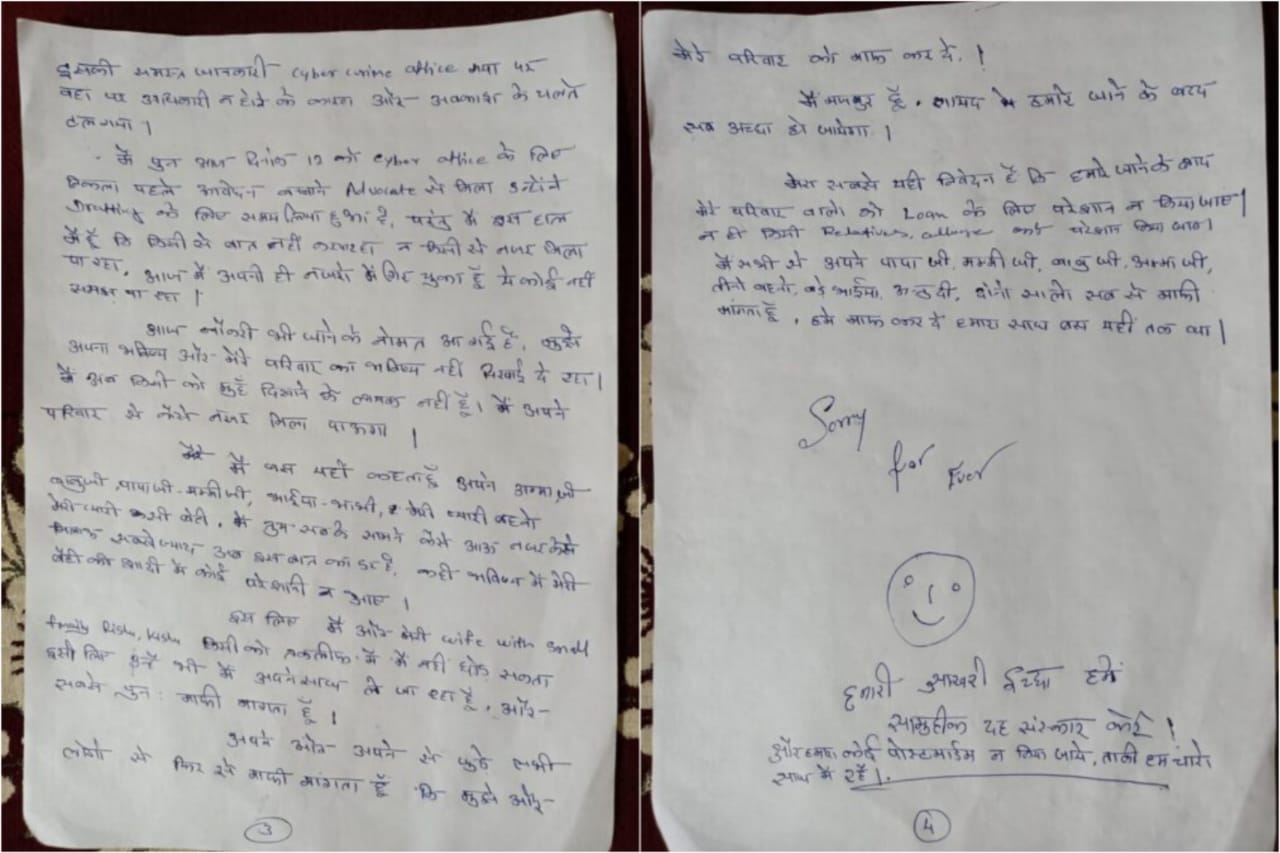 इसकी समस्त जानकारी cyber crime office गया पर
वहा पर अधिकारी न होने के कारण और अवकाश के चलते
टल गया।
मैं पुन आज दिनांक 12 को cyber office के लिए
निकला पहले आवेदन बनवाने Advocate से मिला उन्होंने
Drafting के लिए समय लिया हुआ है, परंतु मैं इस हाल
में हूँ कि किसी से बात नहीं कर पा रहा न किसी से नजर मिला
पा रहा, आज मैं अपनी ही नजरो में गिर चुका हूँ ये कोई नहीं
समझ पा रहा।
आज नौकरी भी जाने के नोमत आ गई है, मुझे
अपना भविष्य और मेरे परिवार का भविष्य नहीं दिखाई दे रहा।
मैं अब किसी को मुहँ दिखाने के लायक नहीं हूँ। मैं अपने
परिवार से कैसे नजर मिला पाऊगा।
मैं बस यही कहता हूँ अपने अम्मा जी
बाबुजी, पापाजी-मम्मीजी, भाईया-भाभी, मेरी प्यारी बहनो
मेरी प्यारी बेटी, मैं तुम सबके सामने कैसे आऊ नजर कैसे
सबसे ज्यादा अब इस बात का डर है, कही भविष्य में मेरी
बेटी की शादी में कोई परेशानी न आए।
इस लिए मैं और मेरी wife with small
family Rishu, kishu किसी को तकलीफ में मैं नहीं छोड़ सकता
इसी लिए इन्हें भी मैं अपने साथ ले जा रहा हूँ, और
सबसे पुन: माफी मागता हूँ।
अपने और अपने से जुड़े सभी
लोगो से फिर से माफी मांगता हूँ कि मुझे और
3
मेरे परिवार को माफ कर दे.!
मैं मजबुर हूँ, शायद हमारे जाने के बाद
सब अच्छा हो जायेगा।
मेरा सबसे यही निवेदन है कि हमारे जाने के बाद
मेरे परिवार वालो को Loan के लिए परेशान न किया जाए।
न ही किसी Relatives, को परेशान किया जाए।
मैं सभी से अपने पापा जी, मम्मी जी, बाबु जी, अम्मा जी,
तीनो बहनो, बड़े भाईया, दी, दोनो सालो सब से माफी
मांगता हूँ, हमे माफ कर दे हमारा साथ बस यहीं तक था।
Sorry
for Ever
हमारी आखरी ईच्छा हमें
सामुहीक दाह संस्कार करे!
और हमारा कोई पोस्टमार्डम न किया जाये, ताकी हम चारो
साथ में रहें।
4